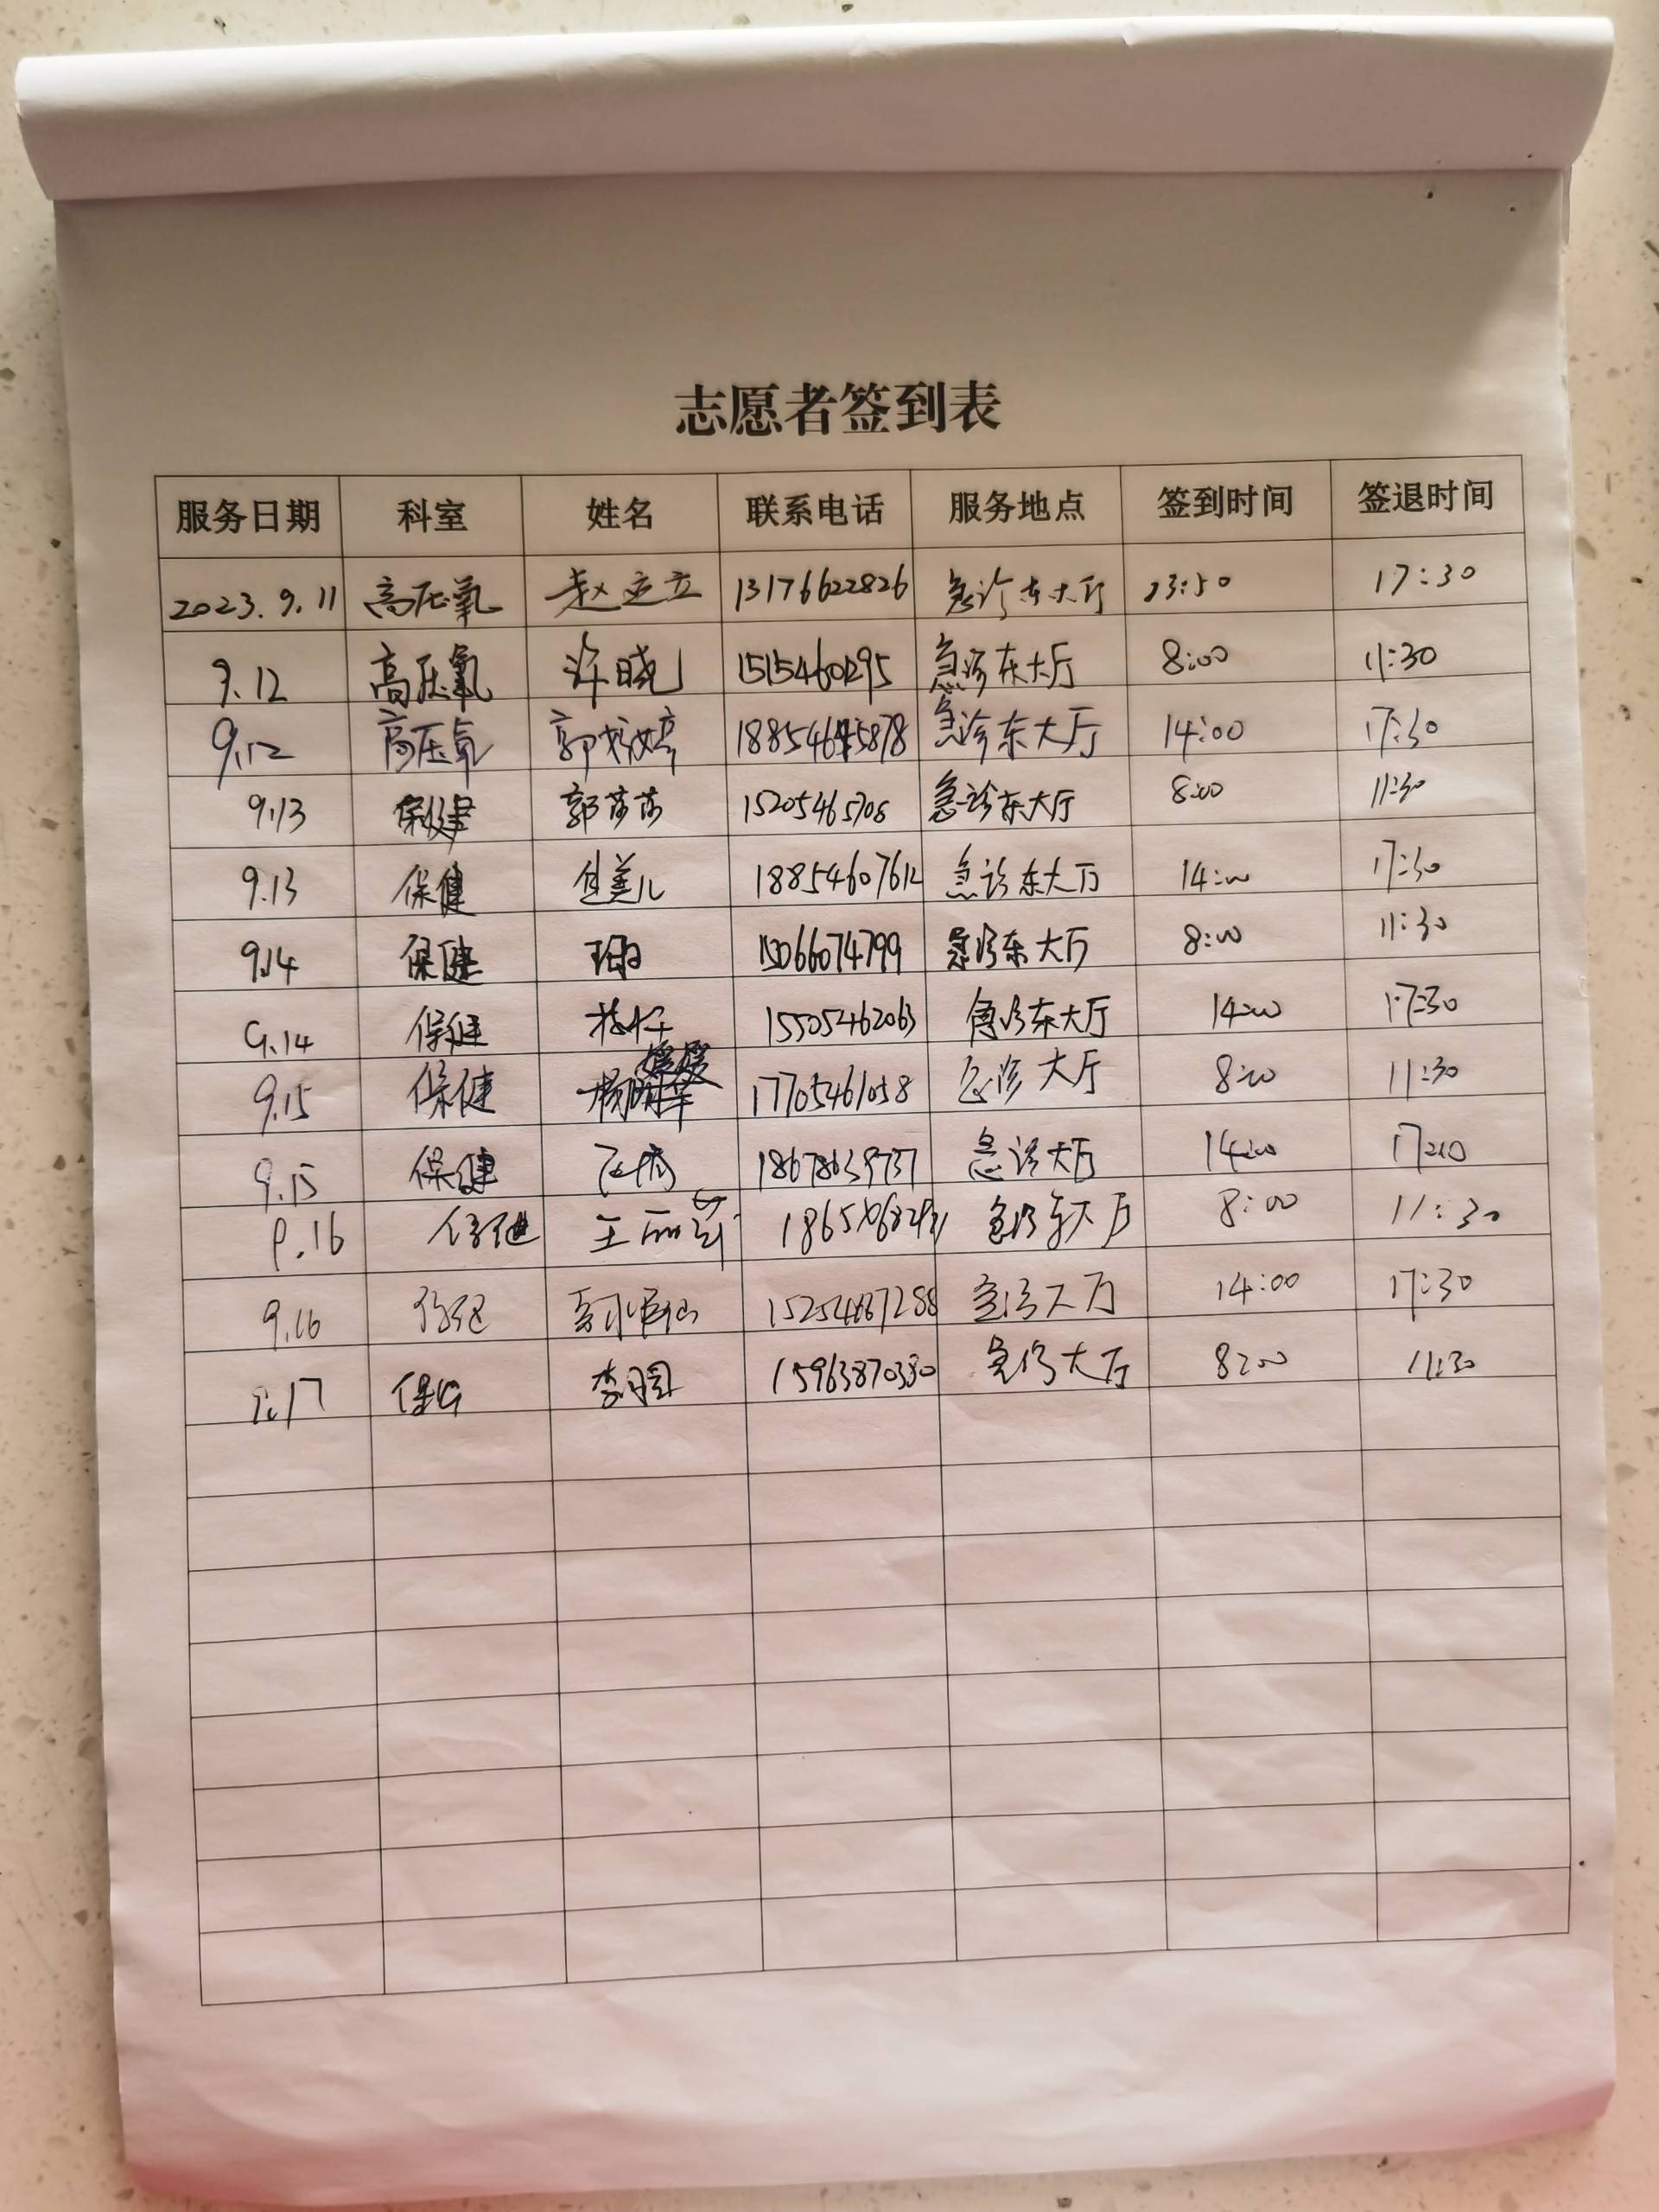 志愿者签到表
服务日期 科室 姓名 联系电话 服务地点 签到时间 签退时间
2023.9.11 高压氧 赵立立 13176622826 急诊东大厅 13:50 17:30
9.12 高压氧 许晓 急诊东大厅 8:00 11:30
9.12 高压氧 急诊东大厅 14:00 17:30
9.13 保健 郭莎莎 急诊东大厅 8:00 11:30
9.13 保健 18854607612 急诊东大厅 14:00 17:30
9.14 保健 15066074799 急诊东大厅 8:00 11:30
9.14 保健 15505462063 急诊东大厅 14:00 17:30
9.15 保健 17705461058 急诊大厅 8:00 11:30
9.15 保健 急诊大厅 14:00
9.16 保健 急诊东大厅 8:00 11:30
9.16 保健 急诊大厅 14:00 17:30
9.17 保健 15963870380 急诊大厅 8:00 11:30